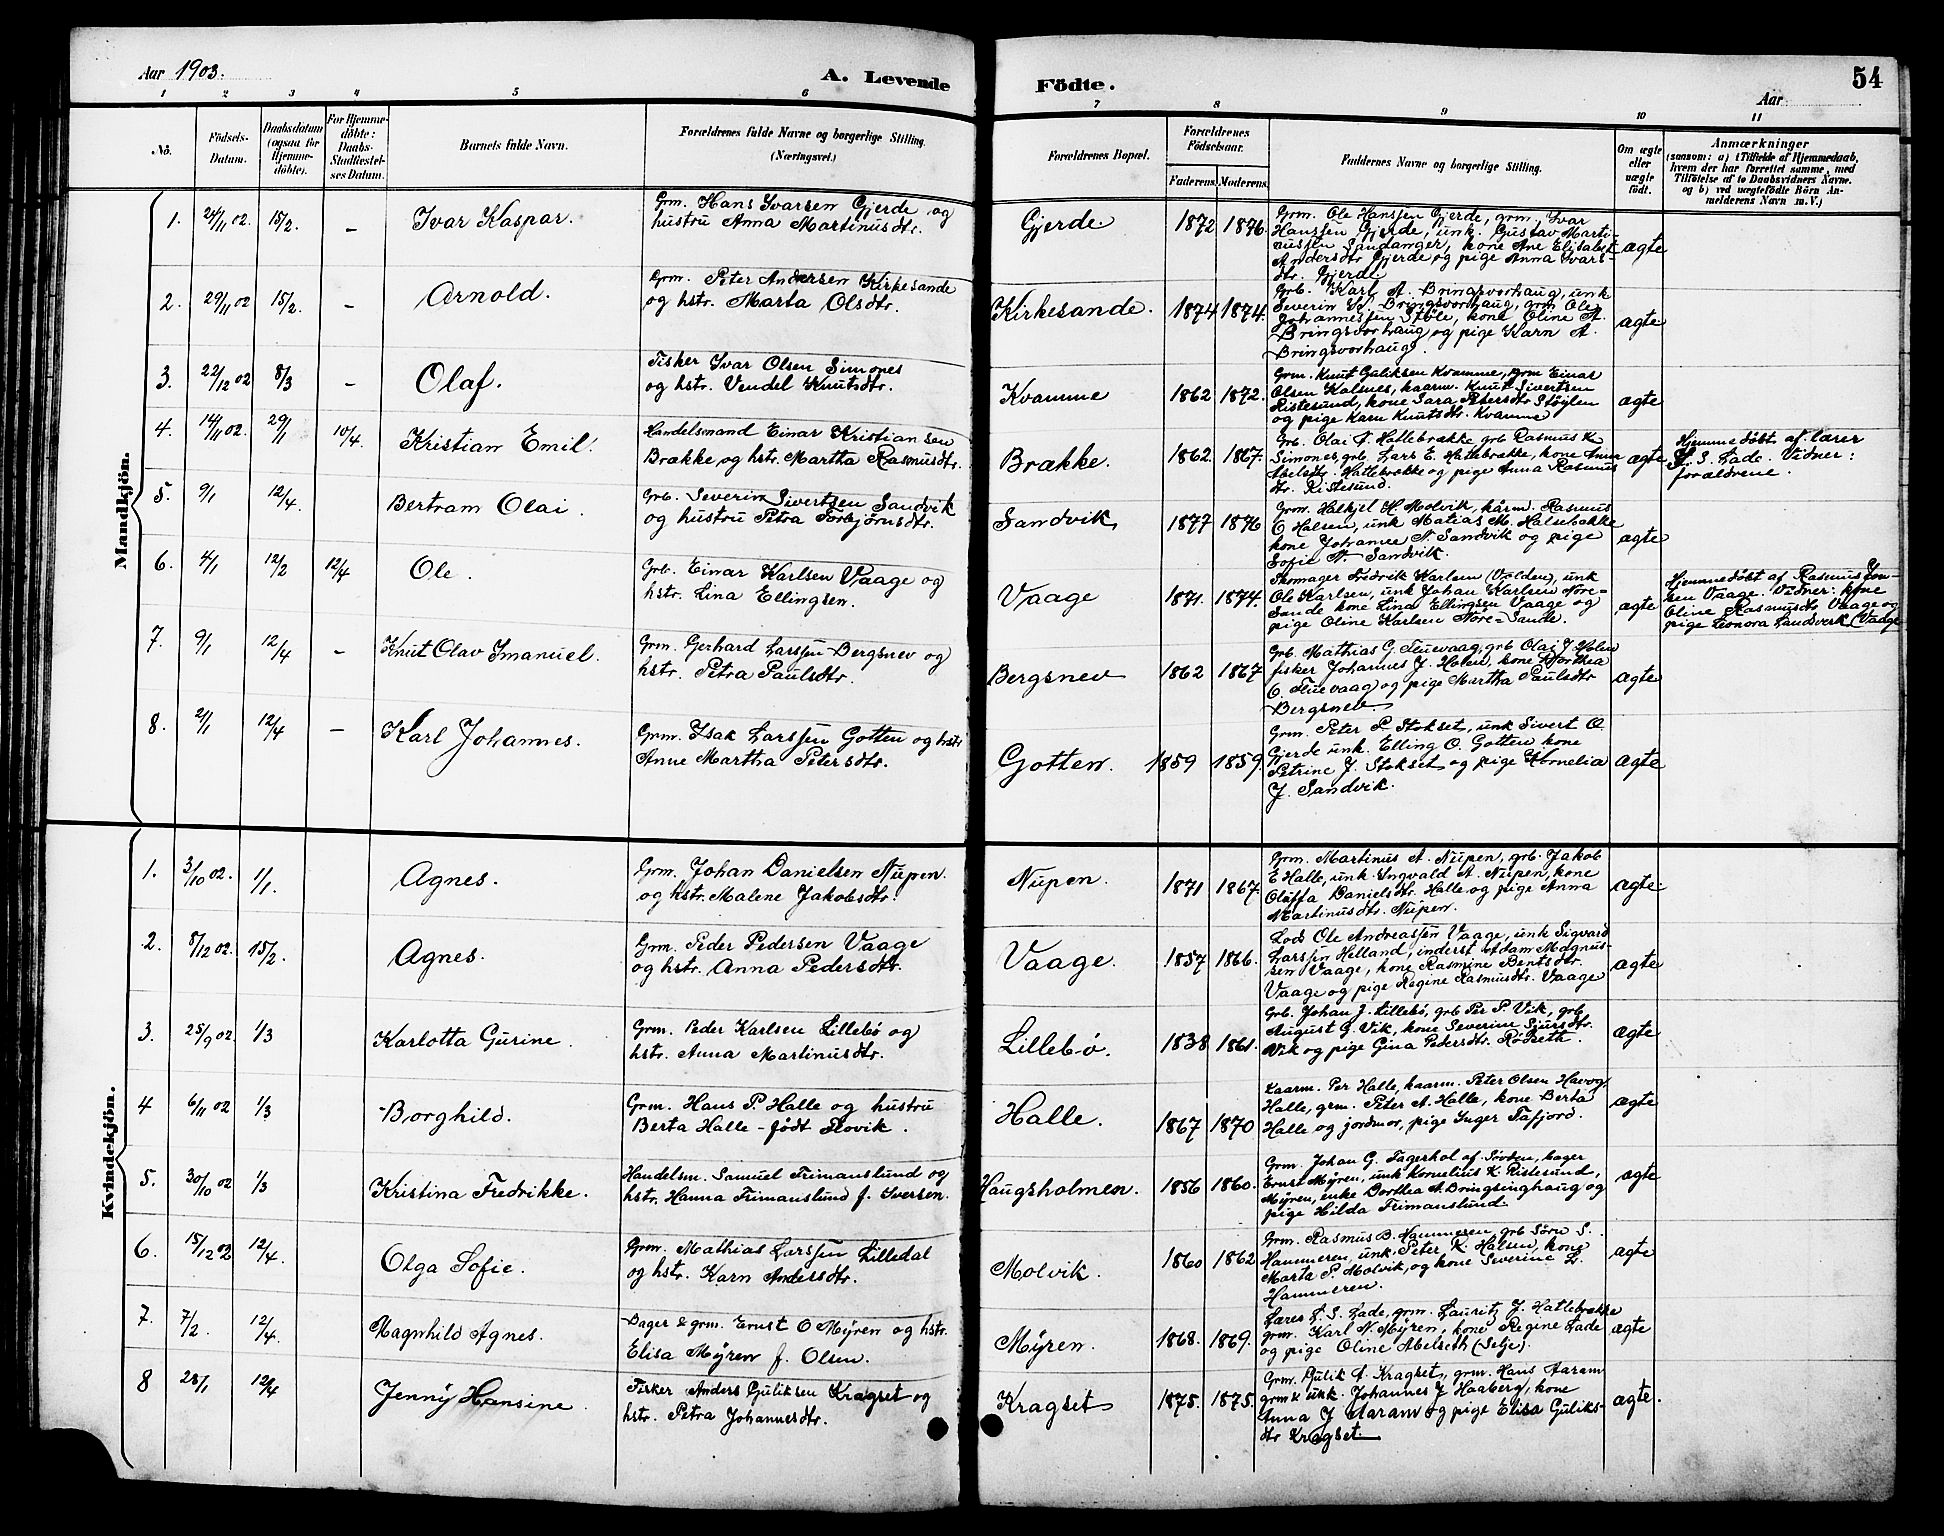 Aar 1903.
A. Levende Födte.
54
Aar
1 2 3 4 5 6 7 8 9 10 11
No.
Födsels-Datum.
Daabsdatum (ogsaa for Hjemme-döbte).
For Hjemme-döbte: Daabs-Stadfæstel-ses Datum.
Barnets fulde Navn.
Forældrenes fulde Navne og borgerlige Stilling. (Næringsvei.)
Forældrenes Bopæl.
Forældrenes Födselsaar.
Faderens. Moderens.
Faddernes Navne og borgerlige Stilling.
Om ægte eller uægte födt.
Anmærkninger
(saasom: a) i Tilfælde af Hjemmedaab, hvem der har forrettet samme, med Tilföielse af to Daabsvidners Navne. og b) ved uægtefödte Börn Anmelderens Navn m. V.)
Mandkjön.
1. 24/11 02. 15/2. – Ivar Kaspar.
Grm. Hans Ivarsen Gjerde og
hustru Anna Martinusdtr.
Gjerde 1872 1876.
Grm. Ole Hanssen Gjerde, grm. Ivar
Hanssen Gjerde, unk. Gustav Marti-
nussen Sandanger, kone Ane Elisabet
Andersdtr Gjerde og pige Anna Ivars-
dtr. Gjerde
ægte
2. 29/11 02 15/2. – Arnold.
Grm. Peter Andersen Kirkesande
og hstr. Marta Olsdtr.
Kirkesande. 1874 1874.
Grb. Karl A. Bringsvorhaug, unk
Severin K. Bringsvorhaug, grm Ole
Johannessen Støle, kone Oline A.
Bringsvorhaug og pige Karn A.
Bringsvorhaug.
ægte
3. 22/12 02 8/3 – Olaf.
Fisker Ivar Olsen Simones
og hstr. Vendel Knutsdtr.
Kvamme 1862 1872.
Grm. Knut Guliksen Kvamme, grm Einar
Olsen Kalsnes, kaarm. Knut Sivertsen
Ristesund, kone Sara Petersdtr Støylen
og pige Karn Knutsdtr. Kvamme
ægte
4. 14/11 02. 29/1 10/4. Kristian Emil.
Handelsmand Einar Kristiansen
Brække og hstr. Martha Rasmusdtr.
Brække. 1862. 1867.
Grb. Olai A. Hatlebrække, grb Rasmus K
Simones, grb. Lars E. Hatlebrække, kone Anne
Abelsdtr. Hatlebrække og pige Anna Rasmus
dtr. Ristesund.
ægte
Hjemmedøbt af lærer
L. S. Lade. Vidner:
forældrene.
5. 9/1 12/4. Bertram Olai.
Grb. Severin Sivertsen Sandvik
og hustru Petra Torbjørnsdtr.
Sandvik 1877 1876
Grm. Helkjel H. Molvik, kårm. Rasmus
O Halsen, unk Matias M. Halsebakke
kone Johanne N. Sandvik og pige
Sofie N. Sandvik.
ægte
6. 4/1 12/2 12/4 Ole.
Grb. Einar Karlsen Vaage og
hstr. Lina Ellingsen.
Vaage 1871. 1874.
Skomager Fredrik Karlsen (Volden), unk
Ole Karlsen, unk Johan Karlsen Nøre-
Sande kone Lina Ellingsen Vaage og
pige Oline Karlsen Nøre-Sande.
ægte
Hjemmedøbt af Rasmus Jon-
sen Vaage. Vidner: kone
Oline Rasmusdtr Vaage og
pige Leonora Landsverk (Vaage
7. 9/1 12/4 – Knut Olav Imanuel.
Grm. Gerhard Larssen Bergsnev og
hstr. Petra Paulsdtr.
Bergsnev 1862 1867
Grb. Mathias G. Fluevaag, grb Olai J Holen
fisker Johannes J. Holen, kone Dorthea
O. Fluevaag og pige Martha Paulsdtr
Bergsnev
ægte
8. 2/1 12/4 – Karl Johannes.
Grm. Isak Larssen Gotten og hstr
Anne Martha Petersdtr.
Gotten. 1859 1859
Grm. Peter P. Stokset, unk Sivert O.
Gjerde unk. Elling O. Gotten kone
Petrine J. Stokset og pige Kornelia
J. Sandvik.
ægte
Kvindekjön.
1. 3/10 02. 1/1. Agnes.
Grm. Johan Danielsen Nupen.
og hstr. Malene Jakobsdtr.
Nupen. 1871 1867.
Grm. Martinus A. Nupen, grb. Jakob
E Halle, unk. Ingvald A. Nupen, kone
Oluffa Danielsdtr. Halle og pige Anna
Martinusdtr. Nupen.
ægte
2. 8/12 02. 15/2. Agnes.
Grm. Peder Pedersen Vaage
og hstr. Anna Pedersdtr.
Vaage. 1857 1866.
Lods Ole Andreassen Vaage, unk Sigvard
Larssen Helland, inderst Adam Magnus-
sen Vaage, kone Rasmine Bentsdtr.
Vaage og pige Regine Rasmusdtr. Vaage
ægte
3. 25/9 02 1/3 Karlotta Gurine.
Grm. Peder Karlsen Lillebø og
hstr. Anna Martinusdtr.
Lillebø. 1838 1861.
Grb. Johan J. Lillebø, grb Per P. Vik, grb
August G. Vik, kone Severine Sjursdtr.
Vik og pige Gina Pedersdtr. Rødseth.
ægte
4 6/11 02 1/3 Borghild.
Grm. Hans P. Halle og hustru
Berta Halle – født Flovik.
Halle. 1867 1870
Kaarm. Per Halle, kaarm. Peter Olsen Havog,
Halle, grm. Peter A. Halle, kone Berta
Halle og jordmor, pige Inger Tafjord.
ægte
5. 30/10 02 1/3 Kristina Fredrikke.
Handelsm. Samuel Frimanslund og
hstr. Hanna Frimanslund f. Iversen.
Haugsholmen. 1856 1860.
Grm. Johan G. Fagerhol af Sørben, bager
Ernst Myren, unk Kornelius K. Ristesund,
Myren, enke Dorthea A. Bringsinghaug og
pige Hilda Frimanslund
ægte
6. 15/12 02 12/4. Olga Sofie.
Grm. Mathias Larssen Lilledal
og hstr. Karn Andersdtr.
Molvik. 1860 1862
Grm. Rasmus B. Hammeren grb Sørn S.
Hammeren, unk. Peter K. Halsen, kone
Marta P. Molvik, og kone Severine L.
Hammeren.
ægte
7. 7/2. 12/4. Ragnhild Agnes.
Bager & grm. Ernst O Myren og hstr.
Elisa Myren f. Olsen.
Myren. 1868. 1869.
Lærer L. S. Lade, grm. Lauritz J. Hatlebrække
grm. Karl N. Myren, kone Regine Lade
og pige Oline Abelseth (Selje).
ægte
8 28/1 12/4 Jenny Hansine.
Fisker Anders Guliksen Kragset og
hstr. Petra Johannesdtr.
Kragset 1875. 1875.
Grm. Gulik A. Kragset, grm. Hans Aaram
grm & unk. Johannes J Haaberg, kone
Anna J Aaram og pige Elisa Guliks-
dtr Kragset.
ægte.